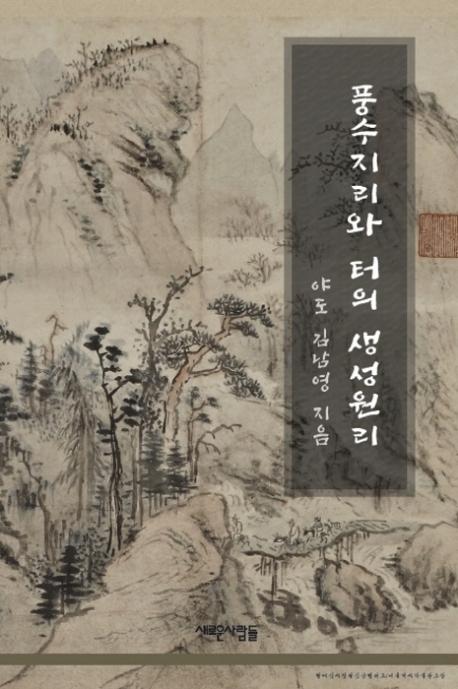 풍수지리와 터의 생성원리
야도 김남영 지음
새로운사람들